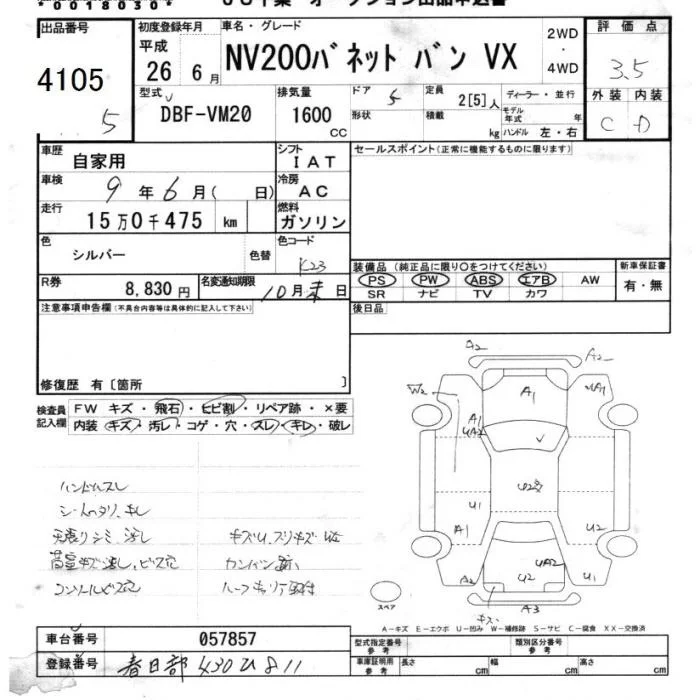 *0018030*
出品番号
4105
5
初度登録年月
平成
26 年 6 月
車名・グレード
NV200バネット バン VX
2WD
・
4WD
評価点
3.5
外装 内装
C D
型式
DBF-VM20
排気量
1600
CC
ドア
5
定員
2[5]人
形状
積載
kg
ディーラー・並行
モデル年式 年
ハンドル 左・右
車歴
自家用
シフト
IAT
セールスポイント(正常に機能するものに限ります)
車検
9 年 6 月( 日)
冷房
AC
走行
15万0千475 km
燃料
ガソリン
色
シルバー
色替
色コード
K23
R券
8,830円
名変通知期限
10月末日
装備品(純正品に限り○をつけてください)
PS PW ABS エアB AW
SR ナビ TV カワ
新車保証書
有・無
後日品
注意事項申告欄(不具合内容等は具体的に記入して下さい)
修復歴 有〔箇所 〕
検査員記入欄
FW キズ・飛石・ヒビ割・リペア跡・×要
内装 キズ・汚レ・コゲ・穴・スレ・キレ・破レ
ハンドルスレ
天張リシミ、
A2
A2
W2
A1
UA1
A1
UA2
U1
A1
U2
UA2
A2
U2
U1
A3
キズ
スペア
A-キズ E-エクボ U-凹み W-補修跡 S-サビ C-腐食 XX-交換済
車台番号
057857
登録番号
春日部 430 ひ 811
型式指定番号
参考
類別区分番号
参考
車庫証明用
参考
長さ cm
幅 cm
高さ cm